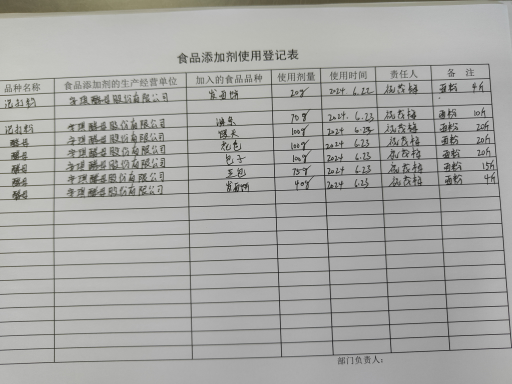 食品添加剂使用登记表
品种名称 食品添加剂的生产经营单位 加入的食品品种 使用剂量 使用时间 责任人 备 注
泡打粉 安琪酵母股份有限公司 发面饼 20g 2024.6.22 面粉 4斤
泡打粉 安琪酵母股份有限公司 油条 70g 2024.6.23 面粉 10斤
酵母 安琪酵母股份有限公司 馒头 100g 2024.6.23 面粉 20斤
酵母 安琪酵母股份有限公司 花卷 100g 2024.6.23 面粉 20斤
酵母 安琪酵母股份有限公司 包子 100g 2024.6.23 面粉 20斤
酵母 安琪酵母股份有限公司 75g 2024.6.23 面粉 15斤
酵母 安琪酵母股份有限公司 发面饼 40g 2024.6.23 面粉 4斤
部门负责人：